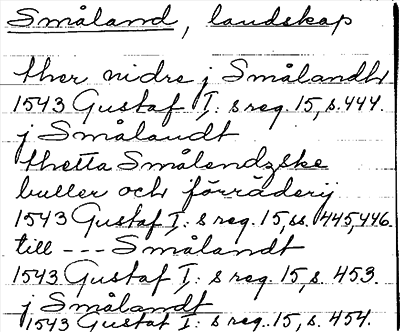 Småland, landskap
ther nidre j Smålandh
1543 Gustaf I: s reg. 15, s. 444.
j Smålandt
thetta Smålendzske
buller och förräderij
1543 Gustaf I: s reg. 15, ss. 445, 446.
till --- Smålandt
1543 Gustaf I: s reg. 15, s. 453.
j Smålandt
1543 Gustaf I: s reg. 15, s. 454.